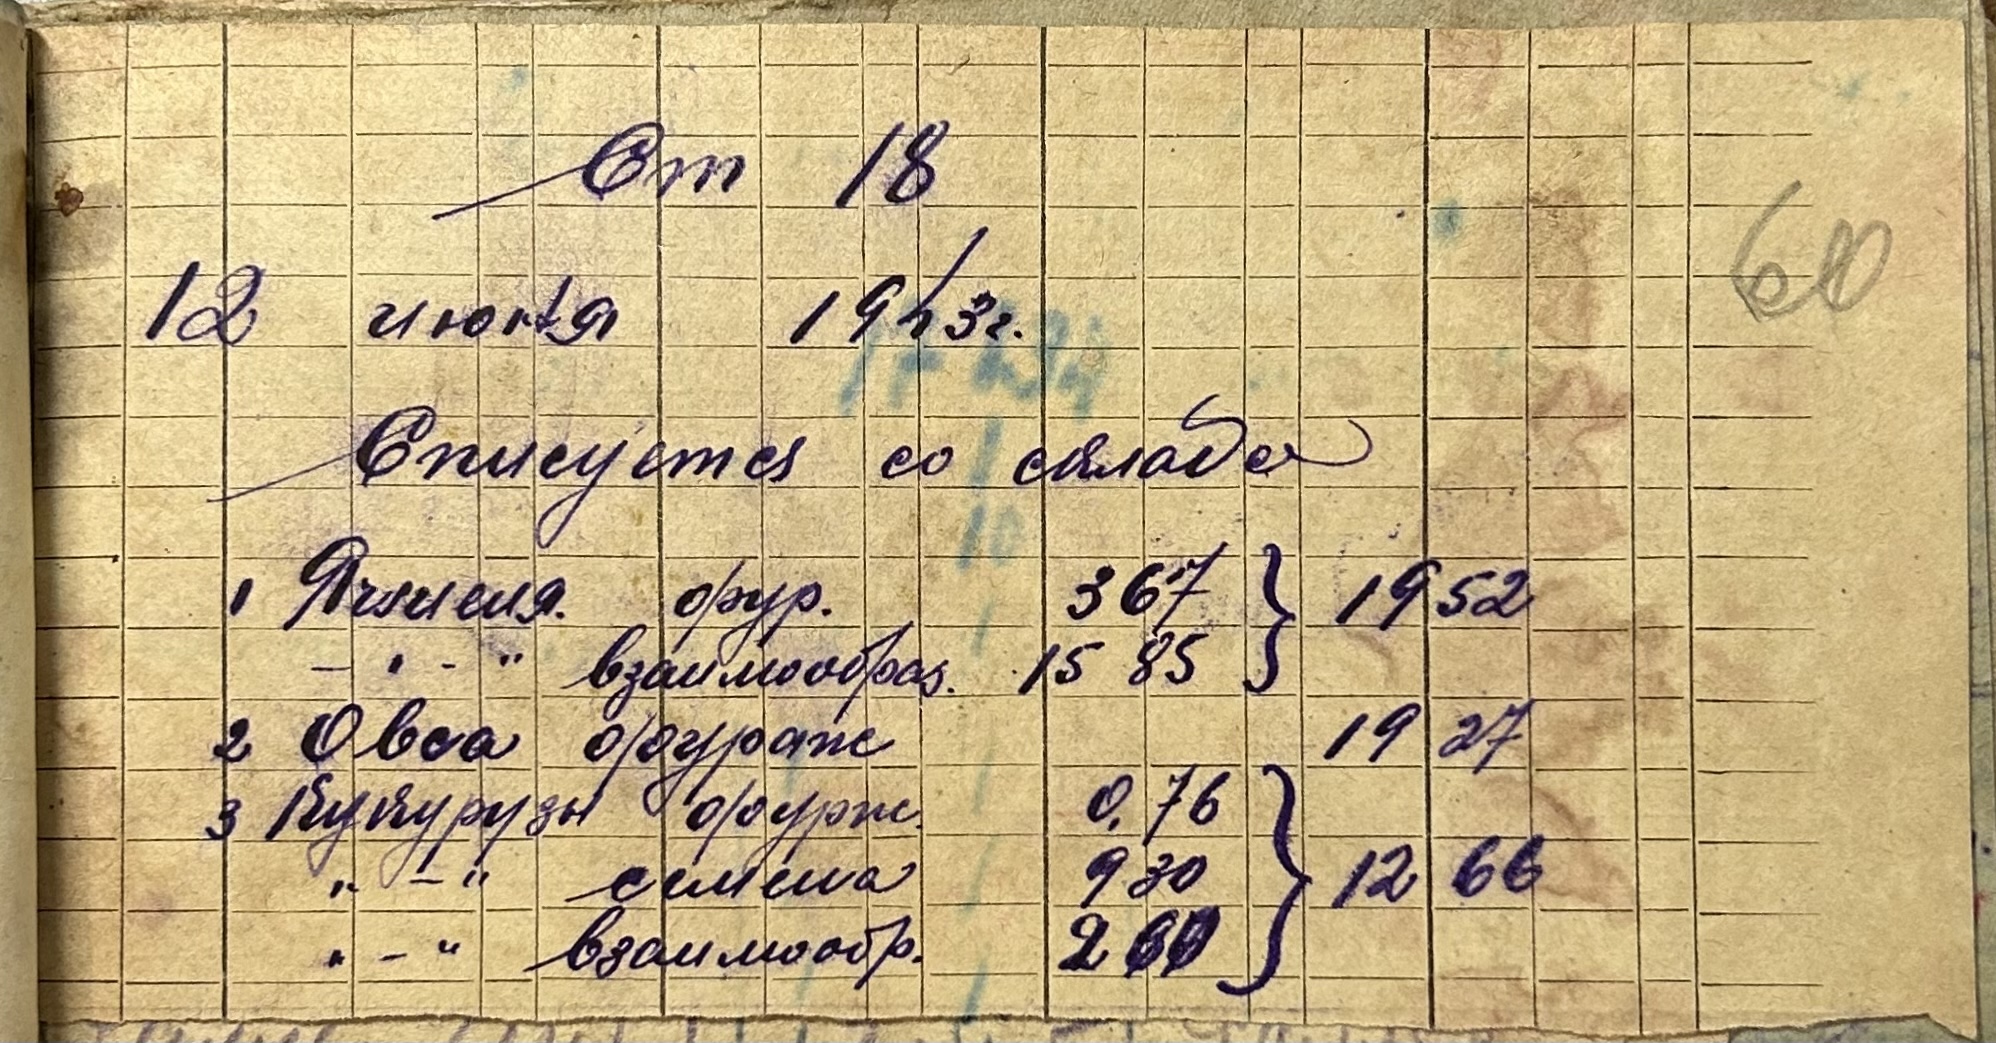 Ст 18
12 1943г.
Списуется со склада
1 Ячменя фур. 367 } 19 52
– " – " взаимообраз. 15 85
2 Овса фураж 19 27
3 Кукурузы фурж. 0,76
" – " семена 930 } 12 66
" – " взаимообр. 260